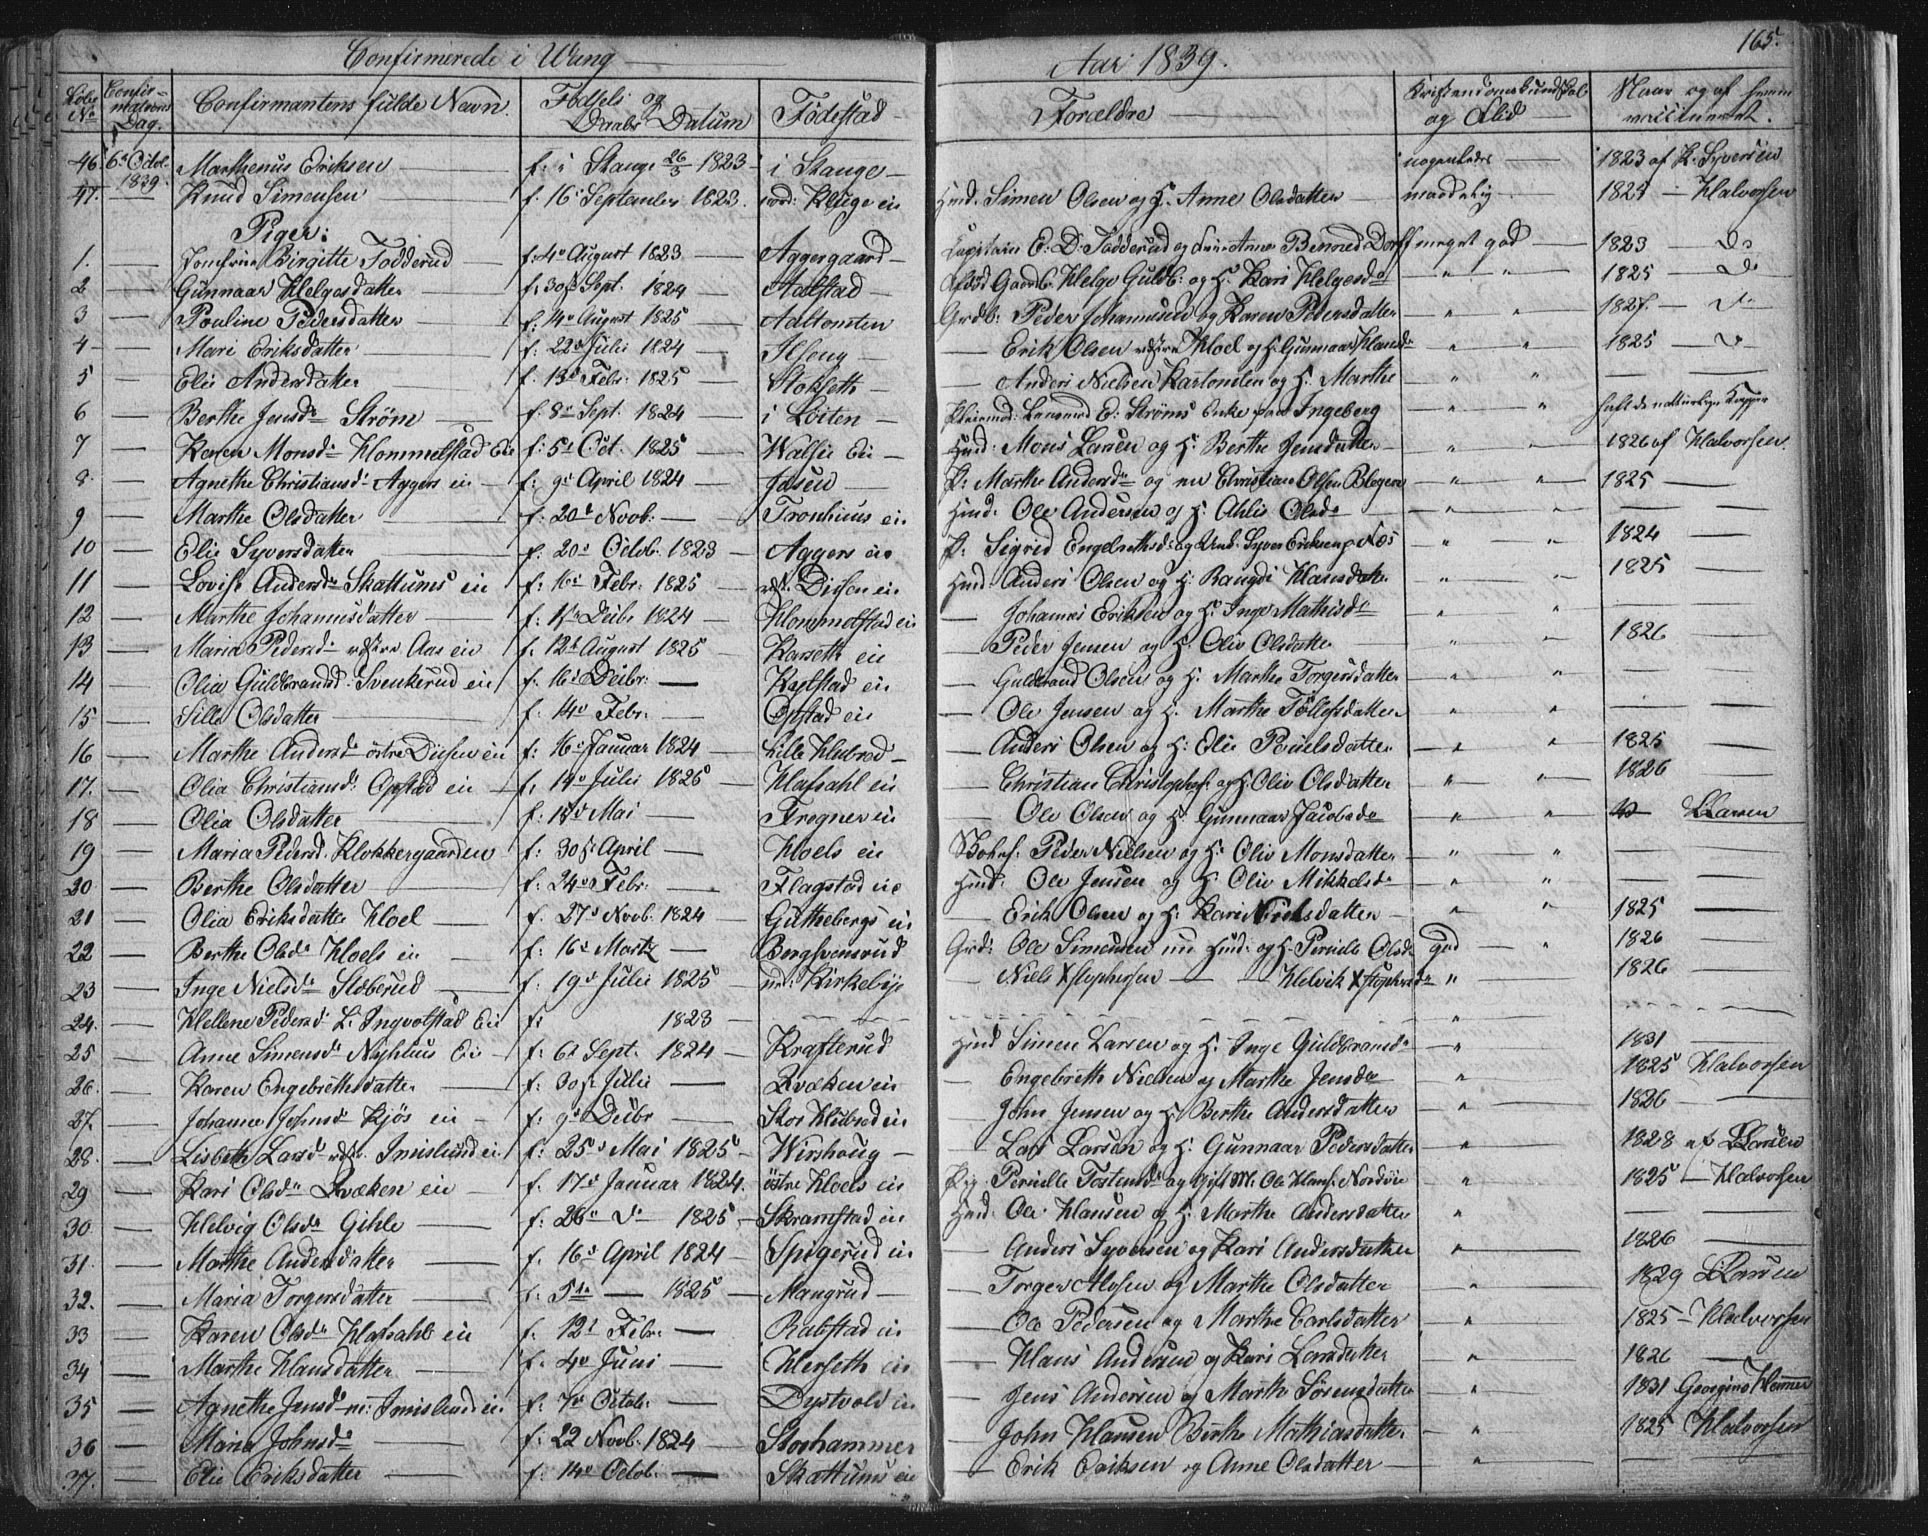 Confirmerede i Wang
Aar 1839.
165.
Løbe No
Confirmations Dag.
Confirmantens fulde Navn.
Fødsels og Daabs Datum
Fødestad
Forældre
Kristendomskundskab og Flid
Naar og af hvem vaccineret.
46. 6te Octob. 1839. Marthenus Eriksen f: i Stange 26/3 1823 i Stange nogenledes 1823 af K. Syversen
47. Knud Simensen f. 16 September 1823. Kluge ei Husd. Simen Olsen og H. Anne Olsdatter maadelig 1824 Halvorsen
Piger:
1. Jomfrue Birgitte Todderud f: 4 August 1823 Aggergaard Capitain E. D. Todderud og Anne meget god 1823 Do
2 Gunnaar Helgesdatter f: 30 Sept. 1824 Aalstad Gaardb. Helge Guldb: og H. Kari Helgesd 1825 Do
3 Pouline Pedersdatter f: 14 August 1825 Aaltomten Grdb: Peder Johannesen og Karen Pedersdatter 1827. Do
4 Mari Eriksdatter f: 22 Juli 1824 Ilseng Erik Olsen Hoel og H. Gunnaar Hansd 1825
5 Elie Andersdatter f. 13 Febr. 1825 Stokseth Anders Nielsen og H. Marthe
6 Berthe Jensd Strøm f: 8 Sept. 1824 i Løiten E. Strøms Enke paa Ingeberg
7 Karen Monsd Hommelstad Eie f: 5 Oct. 1825 Walsie Eie Husd: Mons Larsen og H. Berthe Jensdatter 1826 af Halvorsen
8. Agnethe Christiansd Aggers ei f: 9 April 1824 Jasen P. Marthe Andersd og Christian Olsen 1825
9 Marthe Olsdatter f. 20 Novb. Tronhuus ei Husd. Ole Andersen og H. Ahlis Olsd
10 Elie Syversdatter f. 20 Octob. 1823 Aggers eie P. Sigrid Engebrethsd og Und. Syver Eriksen 1824
11 Lovise Andersd Skattums ei f: 16 Febr. 1825 Dissen ei Husd. Anders Olsen og H. Rangdi Hansdatter 1825
12 Marthe Johannesdatter f: Decbr 1824 Hommelstad ei Johannes Eriksen og H. Inge Mathisd
13 Maria Pedersd Aas ei f. 12 August 1825 Karseth ei Peder Jensen og H. Oliv Olsdatter 1826
14 Olia Guldbrandsd. Svenkerud ei f. 16 Decbr. ei Guldbrand Olsen og H. Marthe Torgersdatter
15 Sille Olsdatter f. 14 Febr. Opstad ei Ole Jensen og H. Marthe Tollefsdatter
16 Marthe Andersd østre Dissen ei f. 16 Januar 1824 Lille Anders Olsen og H: Elie Poulsdatter 1825
17. Olia Christiansd. Opstad ei f. 14 Julii 1825 Hafsahl ei Christian Christophers. og H. Oliv Olsdatter 1826
18 Olia Olsdatter f. Mai Frogner ei Ole Olsen og H. Gunnaar Jacobsd Larsen
19 Maria Pedersd. Klokkergaarden f. 30 April Hoels ei Peder Nielsen og H. Oliv Monsdatter
20 Berthe Olsdatter f. 24 Febr. Flagstad eie Husd: Ole Jensen og H. Oliv Mikkelsd
21 Olia Eriksdatter Hoel f. 27 Novb. 1824 Guthebergs ei Erik Olsen og H. Kari Nielsdatter 1825
22 Berthe Olsd Hoels ei f: 16 Martz Bergsvensrud Grd: Ole Simensen nu Husd: og H. Pernille Olsd god 1826
23 Inge Nielsd Sloberud f. 19 Julii 1825 Kirkebye Niels Xstophersen Helvik Xstophersd 1826
24. Hellene Pedersd L. Ingvolstad Eie f: 1823
25 Anne Simensd Nyhuus Ei f: 6 Sept. 1824 Krafterud Husd Simen Larsen og H. Inge Guldbrandsd 1831
26. Karen Engebrethsdatter f: 30 Julie Qvæken ei Engebreth Nielsen og Marthe Jensd 1825 Halvorsen
27. Johanne Johnsd Kjøs ei f: 9 Decbr Stor ei John Jensen og H: Berthe Andersdatter 1826
28. Lisbeth Larsd Imislund ei f: 25 Mai 1825 Wirshoug Lars Larsen og H. Gunnaar Pedersdatter 1828 af Larsen
29 Kari Olsd Qvæken ei f. 17 Januar 1824. østre Hoels ei Pig Pernille Tostensd og Gift M. Ole Hans. Nordvie 1825 Halvorsen
30. Helvig Olsd Gihle f: 26 Do 1825 Skramstad ei Husd. Ole Hansen og H. Marthe Andersdatter
31. Marthe Andersdatter f. 16 April 1824 Spigerud ei Anders Syversen og Kari Andersdatter 1826
32. Maria Torgersdatter f: 5te 1825 Mangrud Torger Alvsen og Marthe Olsdatter 1829 Larsen
33 Karen Olsd Hafsahls ei f. 12 Febr. Rabstad ei Ole Pedersen og Marthe Carlsdatter 1825 Halvorsen
34 Marthe Hansdatter f. 4 Juni Herseth ei Hans Andersen og Kari Larsdatter 1826
35 Agnethe Jensd ne: Imislund ei f. 7 Octob. Dystvold ei Jens Andersen og Marthe Sørensdatter 1831 Georgine
36 Maria Johnsd f: 22 Novb. 1824 Storhammer John Hansen Berthe Mathiasdatter 1825 Halvorsen
37. Elie Eriksdatter f: 14 Octob. Skattums ei Erik Eriksen og Anne Olsdatter